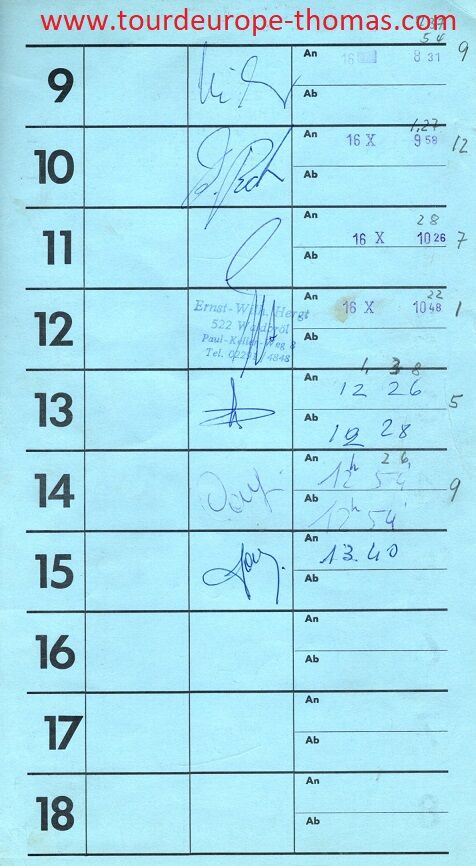 www.tourdeurope-thomas.com
54
9 An 16 8 31 9
Ab
1,27
10 An 16 X 9 58 12
Ab
28
11 An 16 X 10 26 7
Ab
22
12 Ernst-Wilh. Hergt An 16 X 10 48 1
522 Waldbröl
Paul-Keller-Weg 8 Ab
Tel. 4848
1, 38
13 An 12 26 5
Ab 12 28
26
14 An 12h 54 9
Ab 12h 54
15 An 13.40
Ab
16 An
Ab
17 An
Ab
18 An
Ab